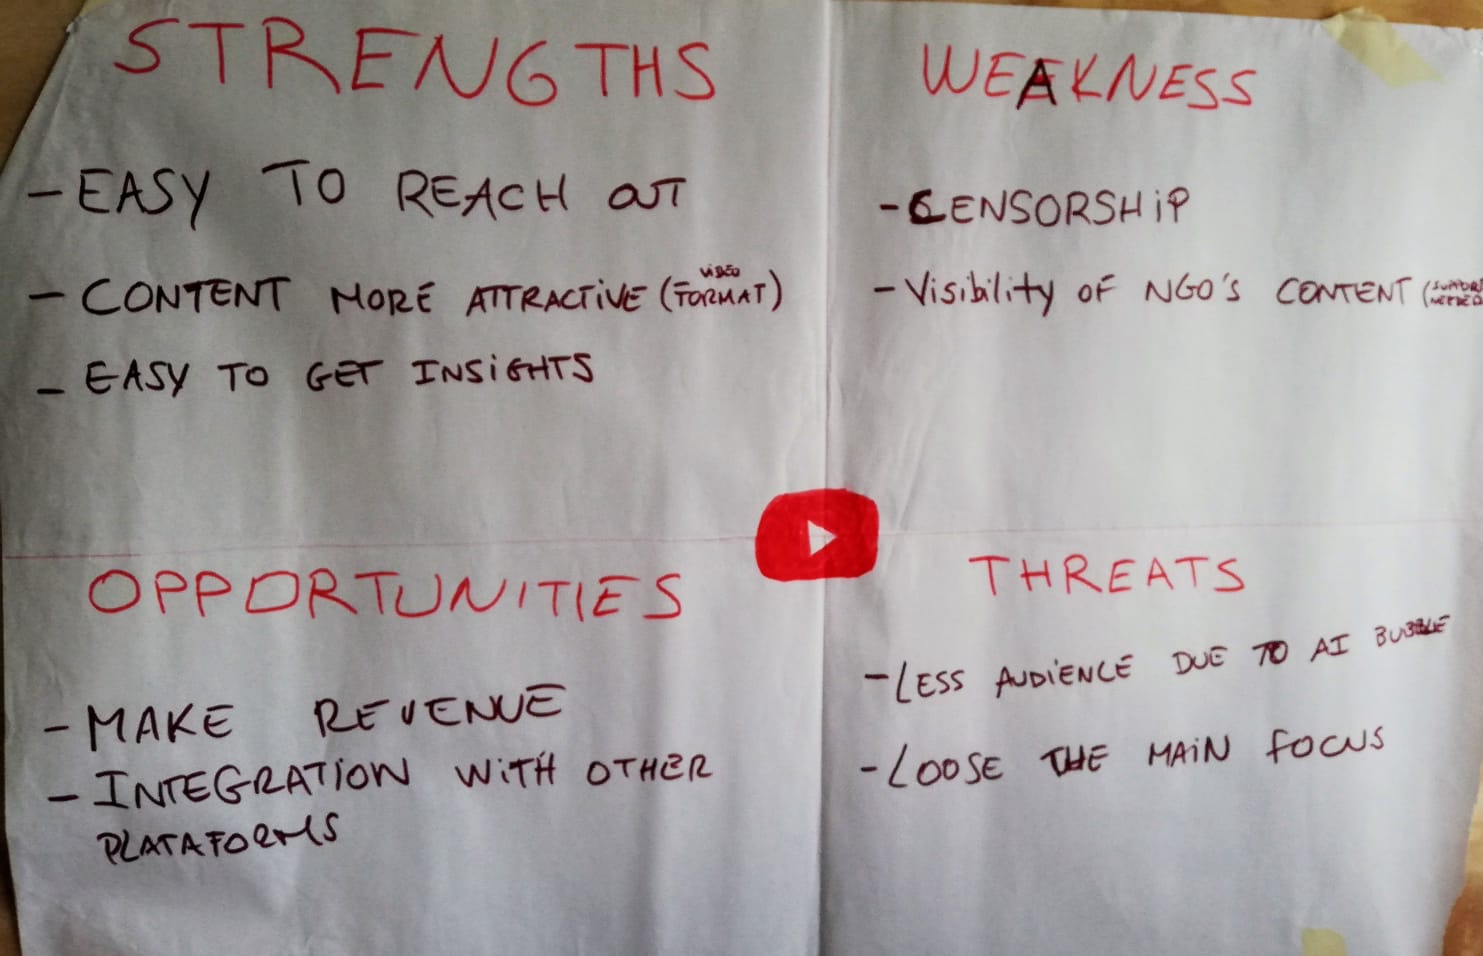 STRENGTHS
- EASY TO REACH OUT
- CONTENT MORE ATTRACTIVE (VIDEO FORMAT)
- EASY TO GET INSIGHTS
WEAKNESS
- CENSORSHIP
- Visibility OF NGO'S CONTENT (SUPPORT NEEDED
OPPORTUNITIES
- MAKE REVENUE
- INTEGRATION WITH OTHER
PLATAFORMS
THREATS
- LESS AUDIENCE DUE TO AI BUBBLE
- LOOSE THE MAIN FOCUS